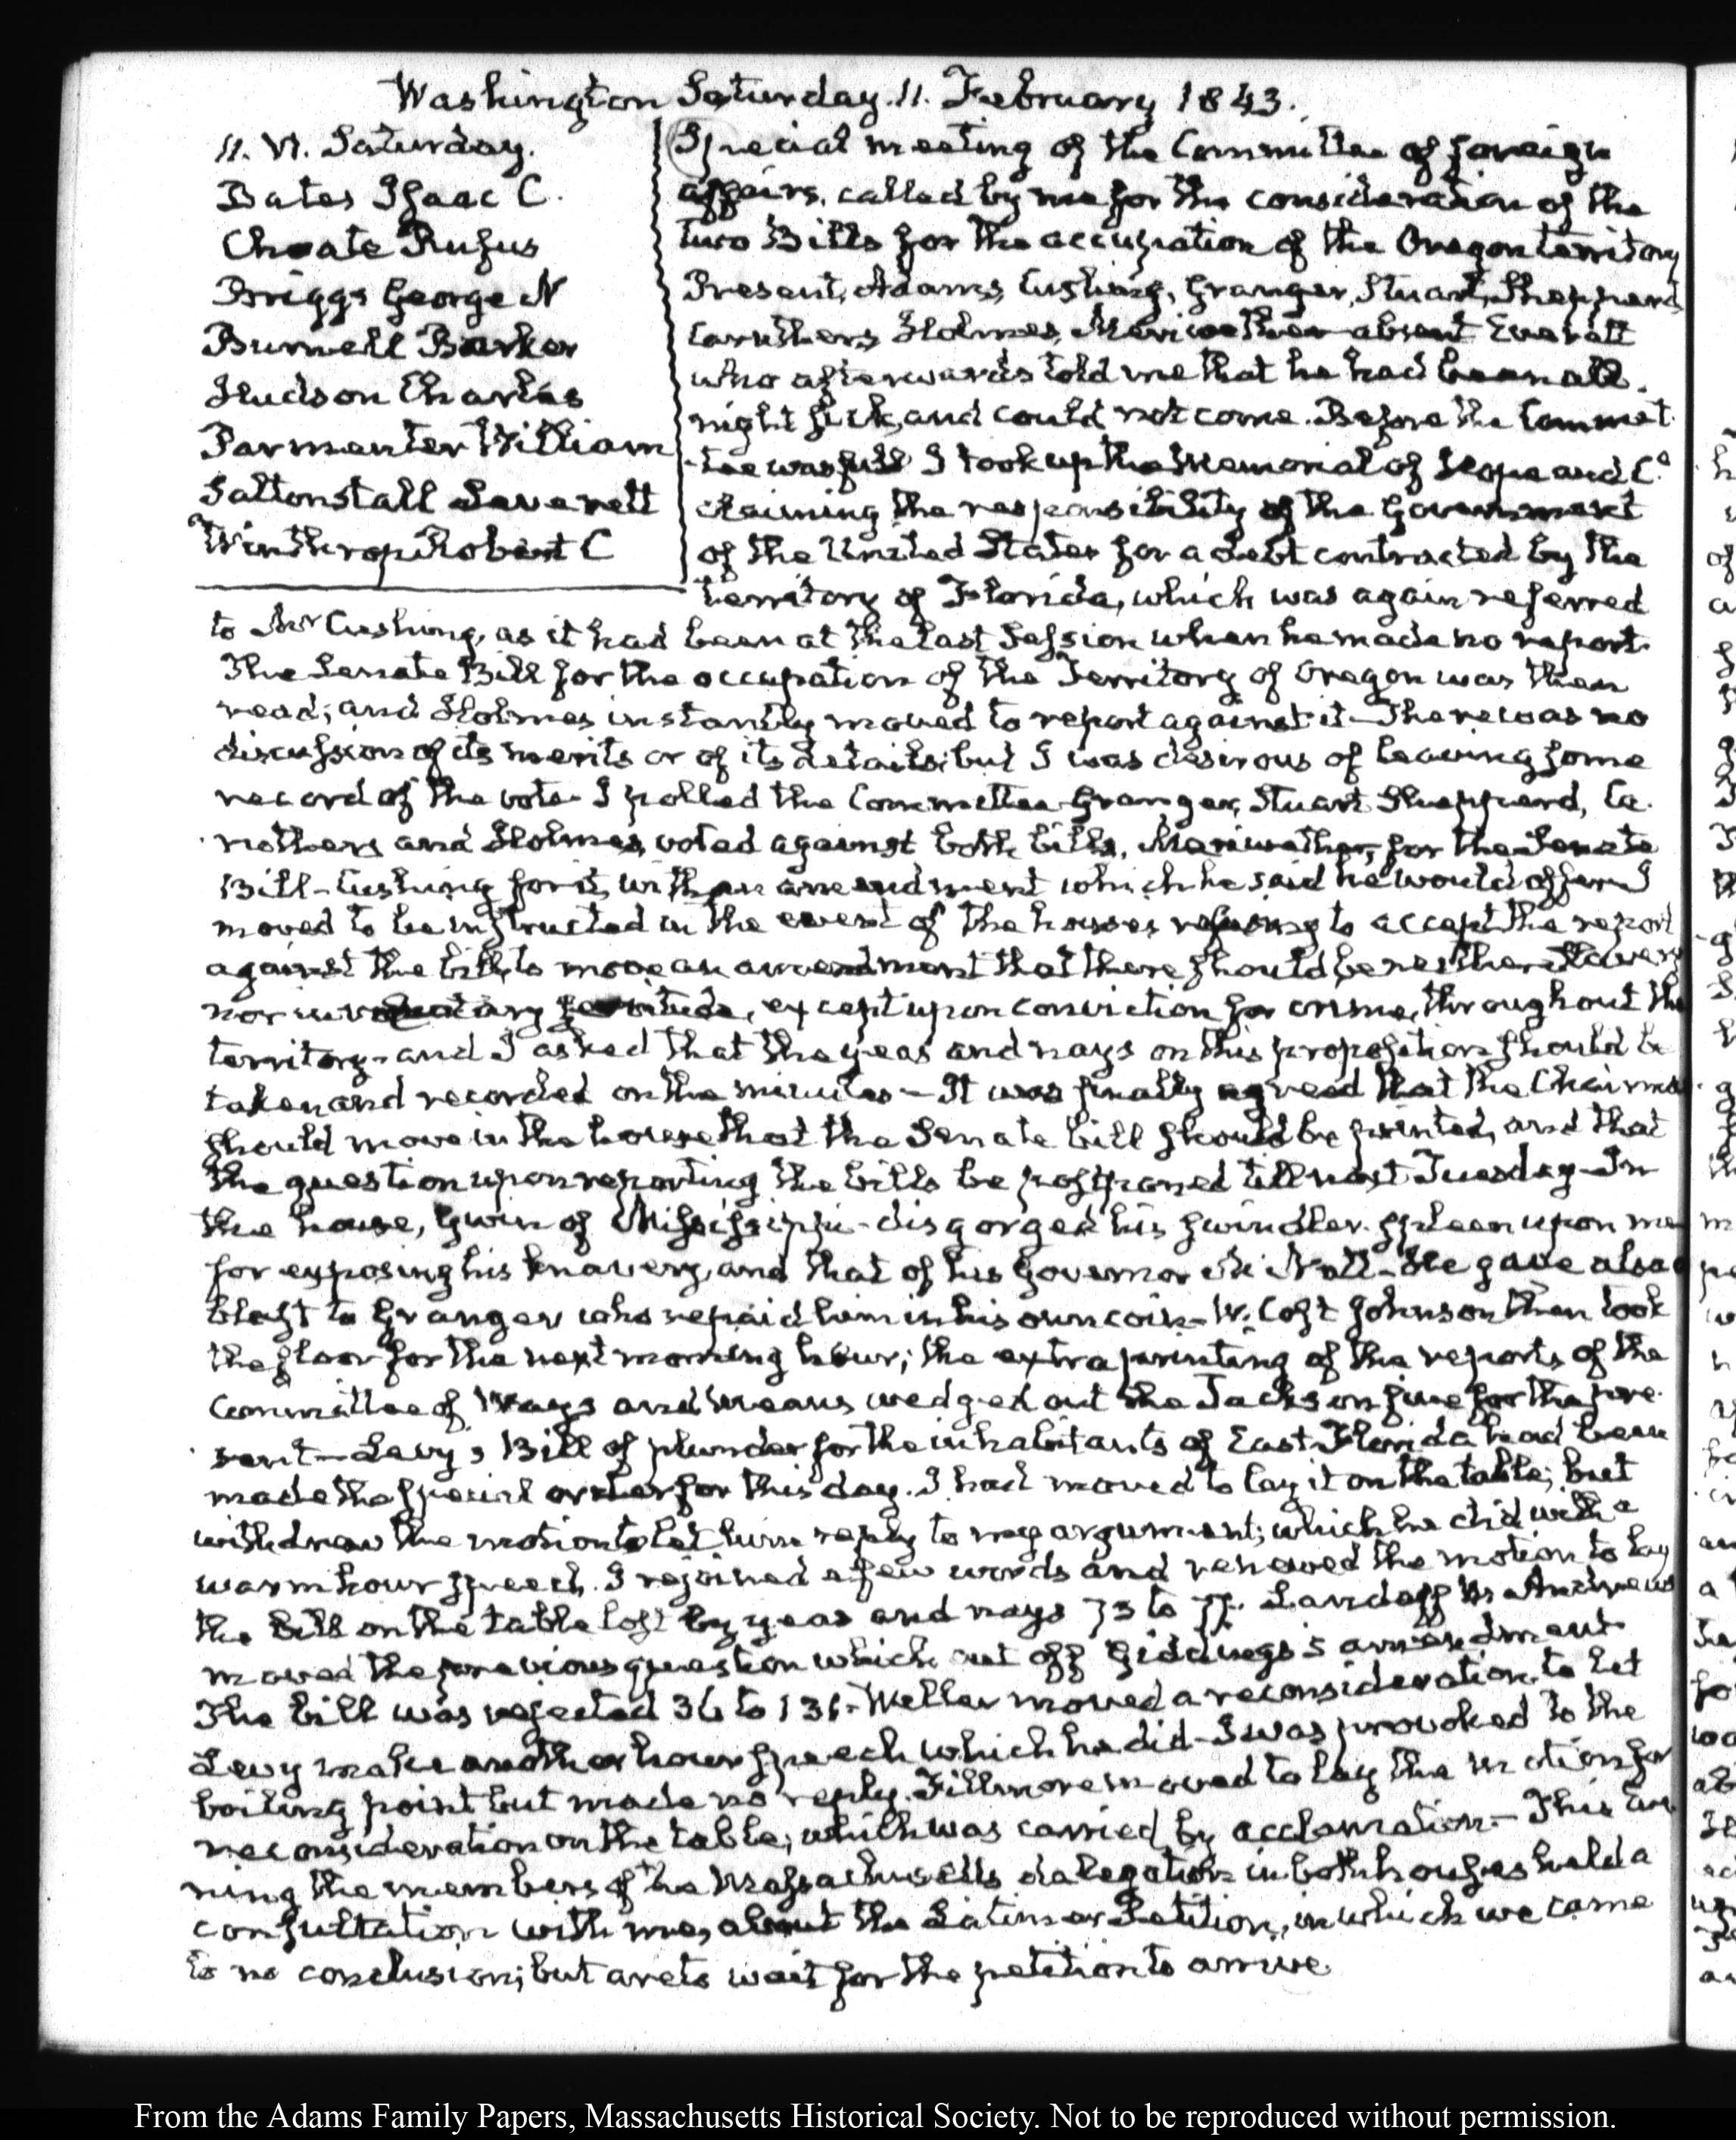 Washington Saturday. 11. February 1843.
11. VI. Saturday.
Bates Isaac C.
Choate Rufus
Briggs George N
Burnell Barker
Hudson Charles
Parmenter William
Saltonstall Leverett
Winthrop Robert C
Special meeting of the Committee of foreign
affairs, called by me for the consideration of the
two Bills for the occupation of the Oregon territory
Present, Adams, Cushing, Granger, Stuart, Shepperd,
Caruthers, Holmes, Meriwether absent Everett
who afterwards told me that he had been all
night sick, and could not come. Before the Commit-
-tee was full I took up the Memorial of Hope and Co.
claiming the responsibility of the Government
of the United States for a debt contracted by the
territory of Florida, which was again referred
to Mr Cushing, as it had been at the last Session when he made no report.
The Senate Bill for the occupation of the Territory of Oregon was then
read; and Holmes instantly moved to report against it - There was no
discussion of its merits or of its details; but I was desirous of leaving some
record of the vote. I polled the Committee. Granger, Stuart Shepperd, Ca-
-rothers and Holmes, voted against both bills, Meriwether, for the Senate
Bill - Cushing for it, with an amendment which he said he would offer. I
moved to be instructed in the event of the houses refusing to accept the report
against the bill, to move an amendment that there should be neither slavery
nor involuntary servitude, except upon conviction for crime, throughout the
territory - and I asked that the yeas and nays on this proposition should be
taken and recorded on the minutes - It was finally agreed that the Chairman
should move in the house that the Senate bill should be printed, and that
the question upon reporting the bills be postponed till next Tuesday - In
the house, Gwin of Mississippi - disgorged his swindler spleen upon me
for exposing his knavery, and that of his Governor McNutt - He gave also a
blast to Granger who repaid him in his own coin - W. Cost Johnson then took
the floor for the next morning hour; the extra printing of the reports of the
Committee of Ways and Means wedged out the Jackson fine for the pre-
-sent - Levy's Bill of plunder for the inhabitants of East Florida had been
made the special order for this day. I had moved to lay it on the table; but
withdrew the motion to let him reply to my argument; which he did with a
warm hour speech. I rejoined a few words and renewed the motion to lay
the bill on the table lost by yeas and nays 73 to 77. Landaff W. Andrews
moved the previous question which cut off Giddings's amendment
The bill was rejected 36 to 136 - Weller moved a reconsideration to let
Levy make another hour speech which he did - I was provoked to the
boiling point but made no reply. Fillmore moved to lay the motion for
reconsideration on the table; which was carried by acclamation - This Eve-
ning the members of the Massachusetts delegation in both houses held a
consultation with me, about the Latimer Petition, in which we came
to no conclusion; but are to wait for the petition to arrive.
From the Adams Family Papers, Massachusetts Historical Society. Not to be reproduced without permission.